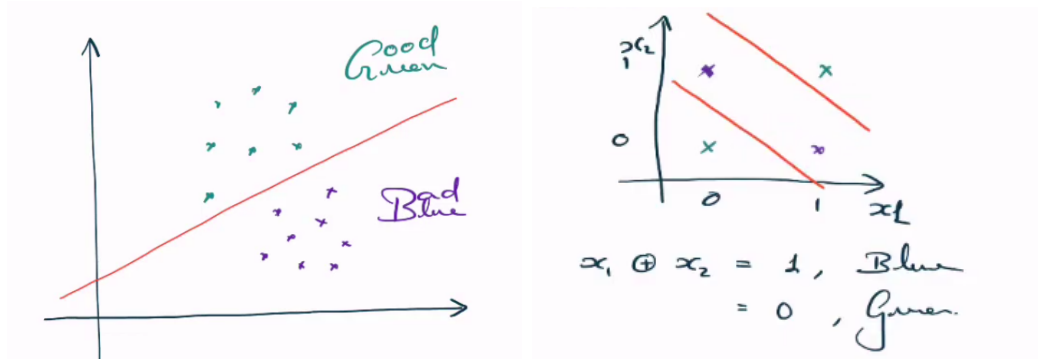 Good
Green
Bad
Blue
x₂
1
0
0
1
x1
x₁ ⊕ x₂ = 1, Blue
= 0, Green.